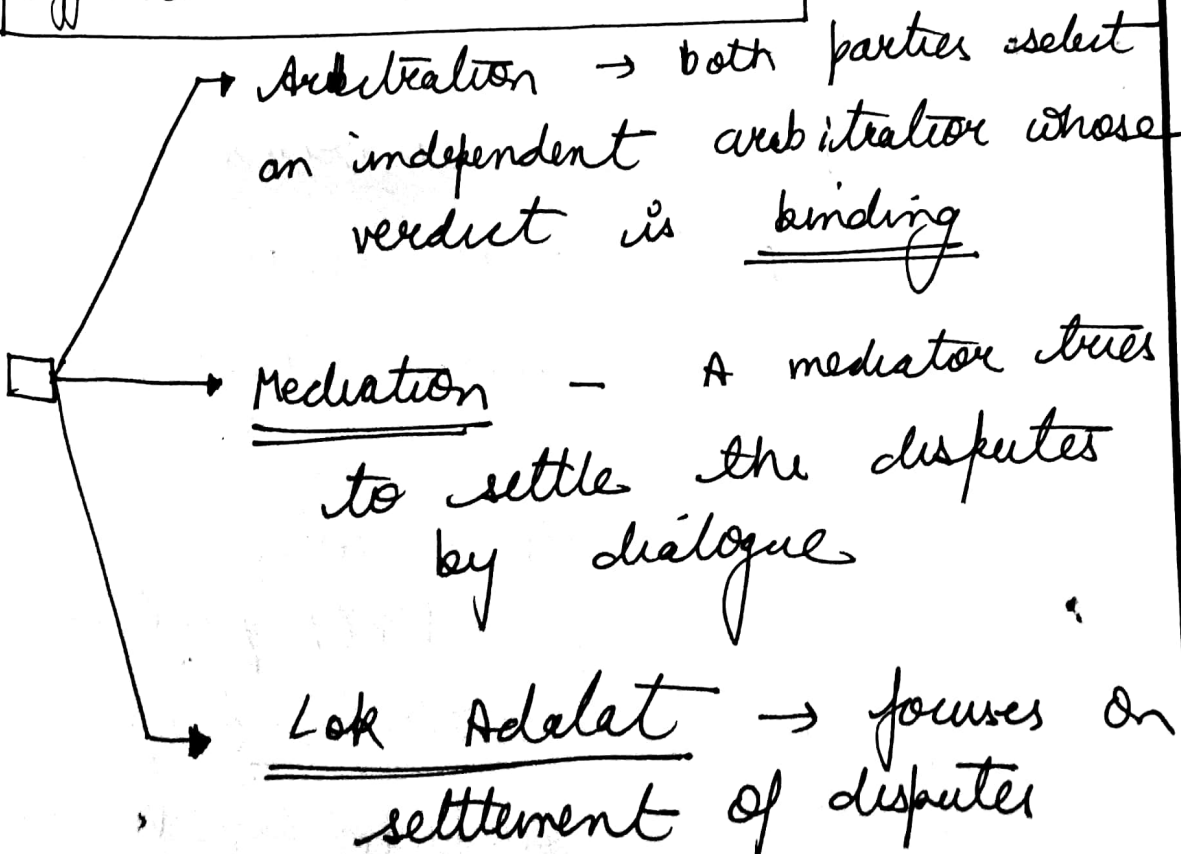 Arbitration → both parties select
an independent arbitrator whose
verdict is binding
Mediation – A mediator tries
to settle the disputes
by dialogue
Lok Adalat → focuses on
settlement of disputes